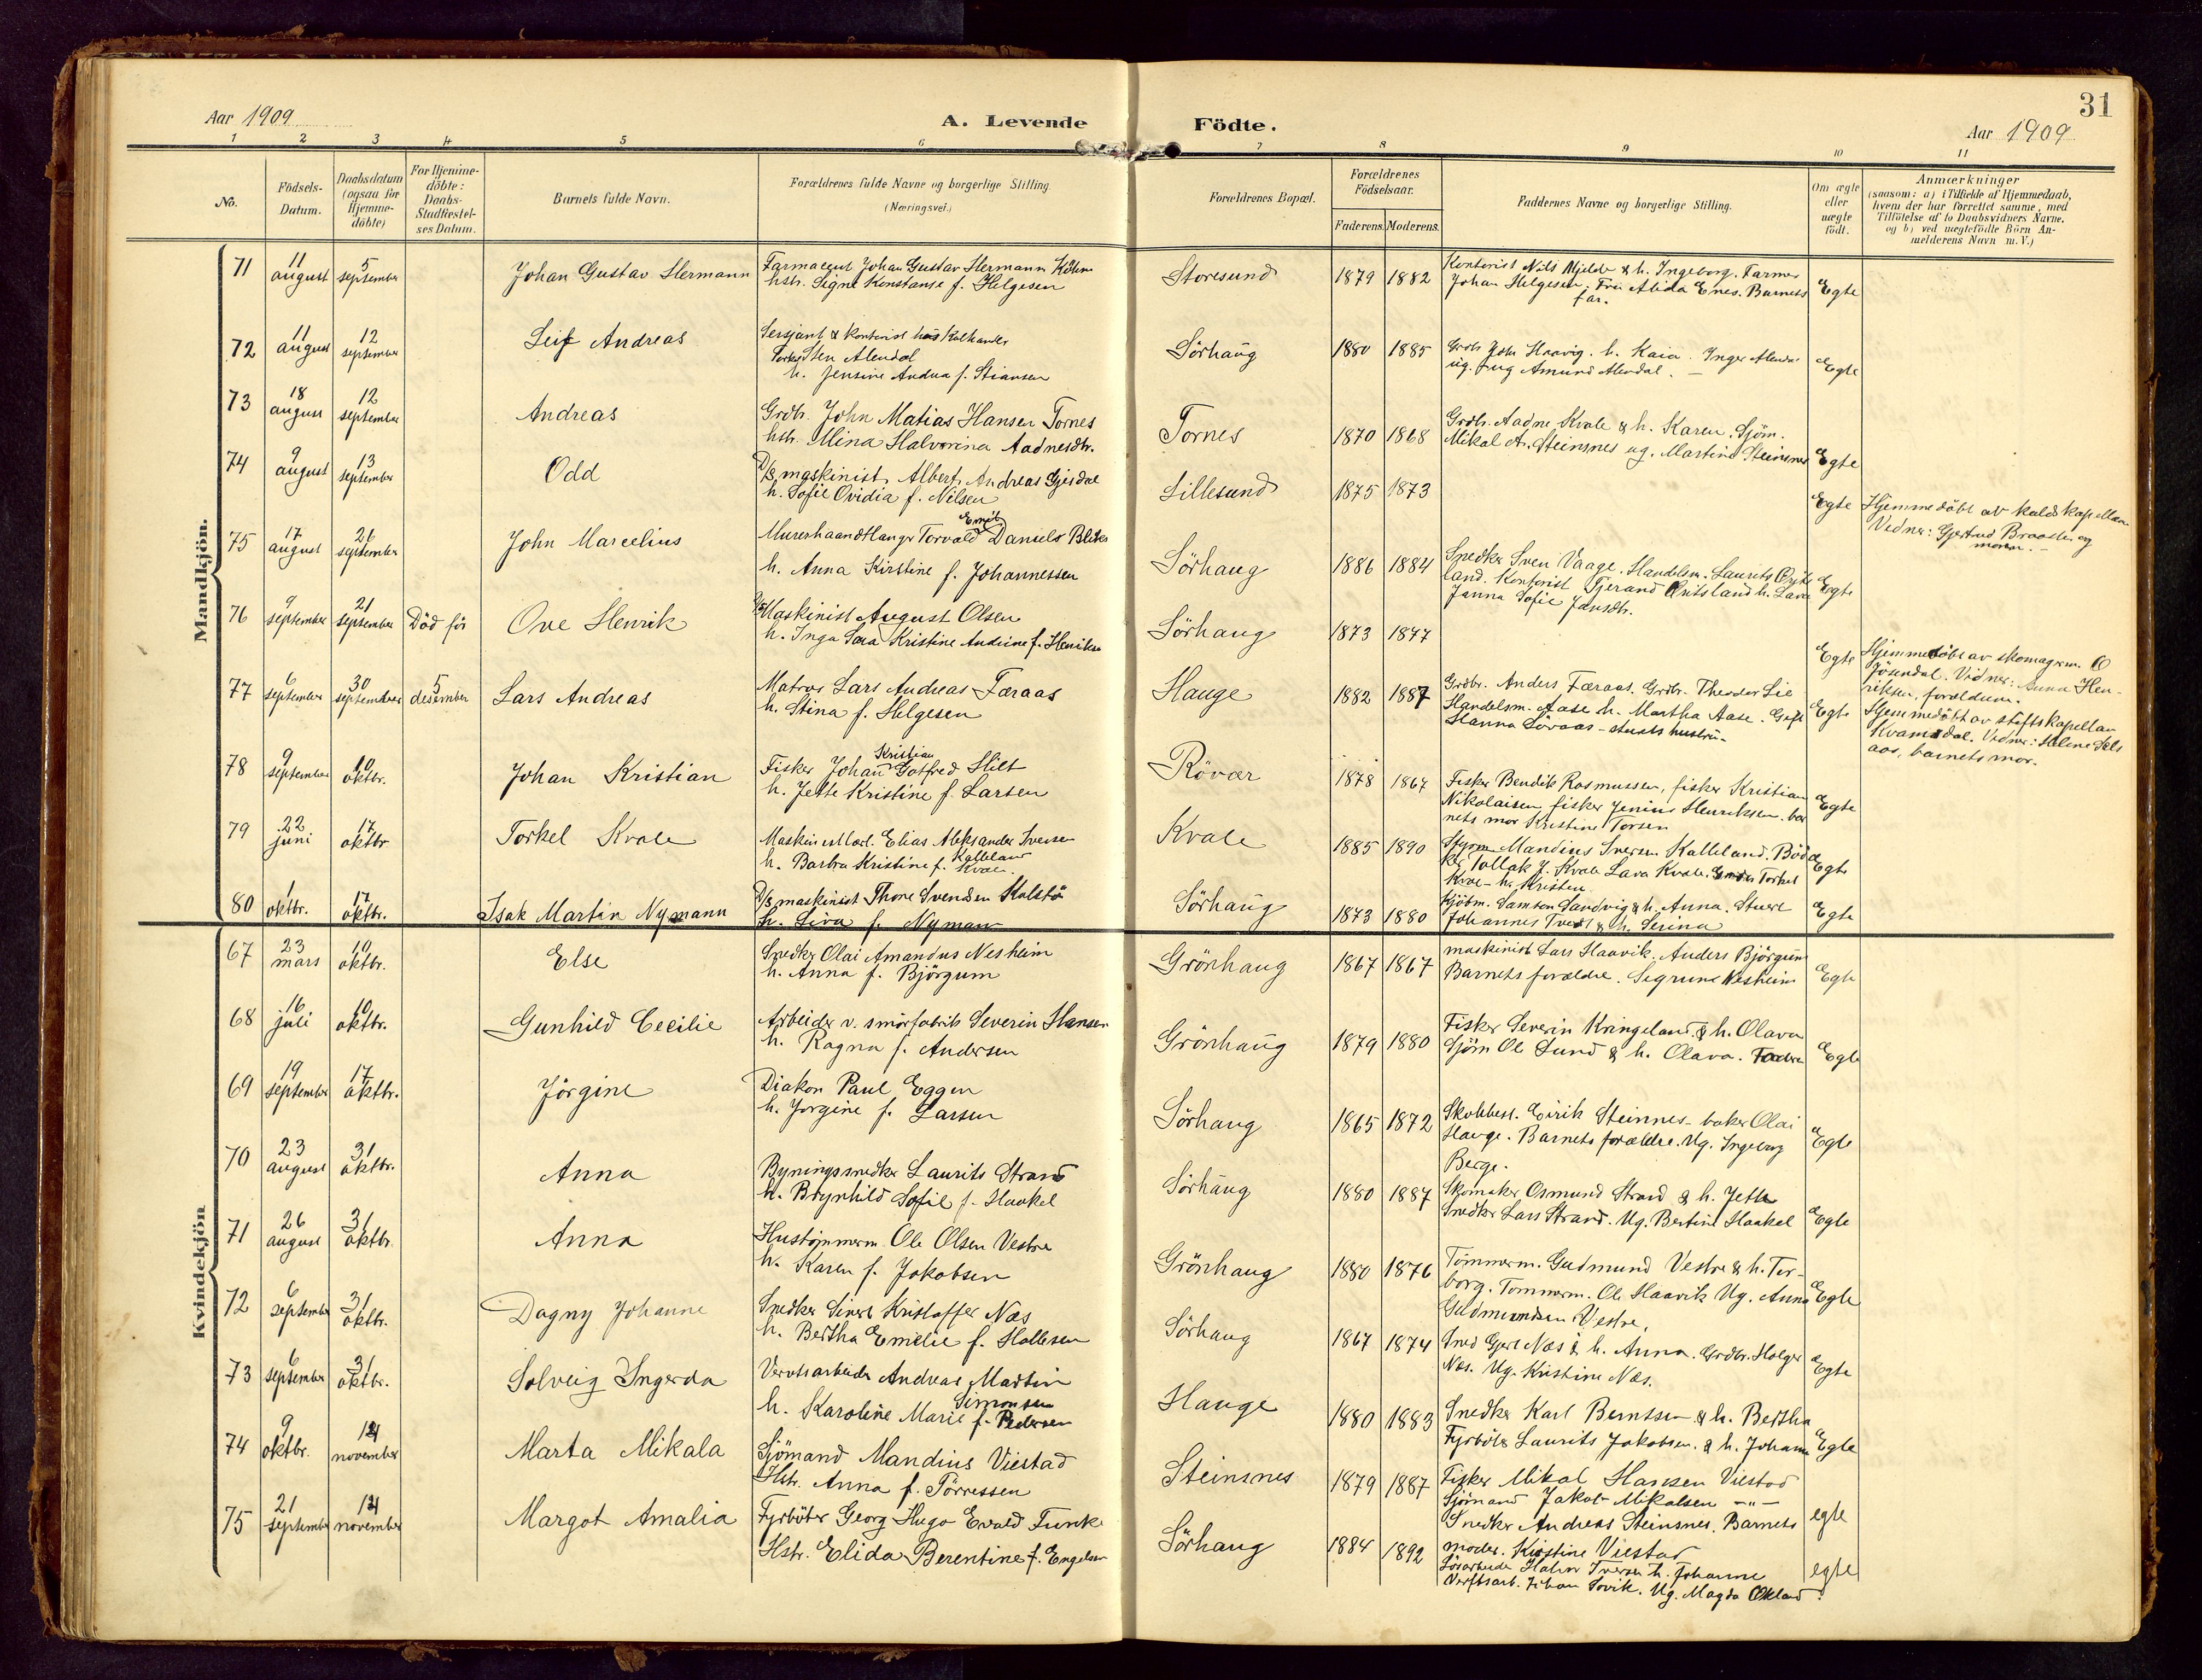 31
Aar 1909
A. Levende Födte.
Aar 1909
1 2 3 4 5 6 7 8 9 10 11
No.
Födsels-Datum.
Daabsdatum (ogsaa for Hjemme-döbte)
For Hjemme-döbte: Daabs-Stadfæstel-ses Datum.
Barnets fulde Navn.
Forældrenes fulde Navne og borgerlige Stilling (Næringsvei.)
Forældrenes Bopæl.
Forældrenes Födselsaar.
Faderens. Moderens.
Faddernes Navne og borgerlige Stilling.
Om ægte eller uægte födt.
Anmærkninger
(saasom: a) i Tilfælde af Hjemmedaab,
hvem der har forrettet samme, med
Tilföielse af to Daabsvidners Navne,
og b) ved uægtefödte Börn An-
melderens Navn m. V.)
Mandkjön.
71 11 august 5 september Johan Gustav Hermann
Farmaceut Johan Gustav Hermann Köhn
hstr. Signe Konstanse f. Helgesen
Storesund 1879 1882
Kontorist Nils Mjelde & h. Ingeborg. Farmer
Johan Helgesen. Fru Alida Enes. Barnets
far.
Egte
72 11 august 12 september Leif Andreas
Sersjant & kontorist hos
Sten Alendal
h. Jensine Andrea f. Stiansen
Sörhaug 1880 1885
Haavig. h. Kaia. Inger
ug. Amund Alendal.
Egte
73 18 august 12 september Andreas
Grdbr. John Matias Hansen Tornes
hstr. Mina Halvorina Aadnesdtr.
Tornes 1870 1868
Grdbr. Aadne Kvale & h. Karen. Sjöm.
Mikal A. Steinsnes ug. Martine Steinsnes
Egte
74 9 august 13 september Odd
D/S maskinist Albert Andreas Gjesdal
h. Sofie Ovidia f. Nilsen
Lillesund 1875 1873
Egte
Hjemmedöbt av kaldskapellan
Vidner: Gjertrud og
moren. -
75 17 august 26 september John Marcelius
Emil
Murerhaandtlanger Torvald Daniels
h. Anna Kirstine f. Johannessen
Sörhaug 1886 1884
Snedker Sven Vaage. Handelsm. Laurits
land. Kontorist Tjerand h. Lava
Janna Sofie Jansdtr.
Egte
76 9 september 21 september Död för Ove Henrik
D/S Maskinist August Olsen
h. Inga Sara Kristine Andrine f. Henriksen
Sörhaug 1873 1877
Egte
Hjemmedöbt av skomagerm. O
Jösendal. Vidner: Anna Hen-
riksen, forældrene.
77 6 september 30 september 5 desember Lars Andreas
Matros Lars Andreas Færaas
h. Stina f. Helgesen
Hauge 1882 1887
Grdbr. Anders Færaas. Grdbr. Theodor Lie
Handelsm. Aase h. Martha Aase. Gift
Hanna Löraas - stuerts hustru -
Egte
Hjemmedöbt av stiftskapellan
Kvamsdal. Vidner:
aas, barnets mor.
78 9 september 10 oktbr. Johan Kristian
Kristian
Fisker Johan Gotfred Hilt
h. Jette Kristine f. Larsen
Rövær 1878 1867
Fisker Bendik Rasmussen, fisker Kristian
Nikolaisen, fisker Jenius Henriksen. bar
nets mor Kristine Torsen
Egte
79 22 juni 17 oktbr Torkel Kvale
Elias Aleksander Iversen
Kalleland
h. Barbra Kristine f. Kvale.
Kvale 1885 1890
Styrm. Mandius Iversen Kalleland. Böd
ker Tollak J. Kvale Lava Kvale. Torkel
h. Kristen
Egte
80 1 oktbr. 17 oktbr. Isak Martin Nymann
D/S maskinist Thore Svendsen Kalstö
h. Siva f. Nyman
Sörhaug 1873 1880
Sjöbm. Samson Sandvig & h. Anna. Stuert
Johannes Tveit & h. Serina
Egte
Kvindekjön
67 23 mars 10 oktbr. Else
Snedker Olai Amandus Nesheim
h. Anna f. Björgum
Grönhaug 1867 1867
maskinist Lars Haavik. Anders Björgum
Barnets forældre. Sigrune Nesheim
Egte
68 16 juli 10 oktbr. Gunhild Cecilie
Arbeider v. smörfabrik Severin Hansen
h. Ragna f. Andersen
Grönhaug 1879 1880
Fisker Severin Kringeland & h. Olava
Sjöm Ole Lund & h. Olava.
Egte
69 19 september 17 oktbr. Jörgine
Diakon Paul Eggen
h. Jorgine f. Larsen
Sörhaug 1865 1872
Skobbest. Eirik Steinnes - baker Olai
Hauge. Barnets forældre. Ug. Ingeborg
Berge.
Egte
70 23 august 31 oktbr. Anna
Bygningssnedker Laurits Strand
h. Brynhild Sofie f. Haakel
Sörhaug 1880 1887
Skomaker Osmund Strand & h. Jette
Snedker Lars Strand. Ug. Bertine Haakel
Egte
71 26 august 31 oktbr. Anna
Hustömmerm. Ole Olsen Vestre
h. Karen f. Jakobsen
Grönhaug 1880 1876
Tömmerm. Gudmund Vestre & h. Tor-
borg. Tommerm. Ole Haavik Ug. Anna
Gudmundsen Vestre.
Egte
72 6 september 31 oktbr. Dagny Johanne
Snedker Sivert Kristoffer Næs
h. Bertha Emelie f. Hollesen
Sörhaug 1867 1874
Sned Gjert Næs & h. Anna. Grdbr. Holger
Næs. Ug. Kristine Næs.
Egte
73 6 september 31 oktbr. Solveig Ingerda
Verftsarbeider Andreas Martin
Simonsen
h. Karoline Marie f. Pedersen
Hauge 1880 1883
Snedker Karl Berntsen & h. Bertha
Fyrböter Laurits Jakobsen. & h. Johanne
Egte
74 9 oktbr. 14 november Marta Mikala
Sjömand Mandius Viestad
Hstr. Anna f. Törressen
Steinsnes 1879 1887
Fisker Mikal Hansen Viestad
Sjömand Jakob Mikalsen -"-
Snedker Andreas Steinsnes. Barnets
moder. Kristine Viestad
egte
75 21 september 14 november Margot Amalia
Fyrböter Georg Hugo Ewald Funke
Hstr. Elida Berentine f. Engelsen
Sörhaug 1884 1892
Halvor Iversen h. Johanne
Verftsarb. Johan Sovik. Ug. Magda Økland.
egte